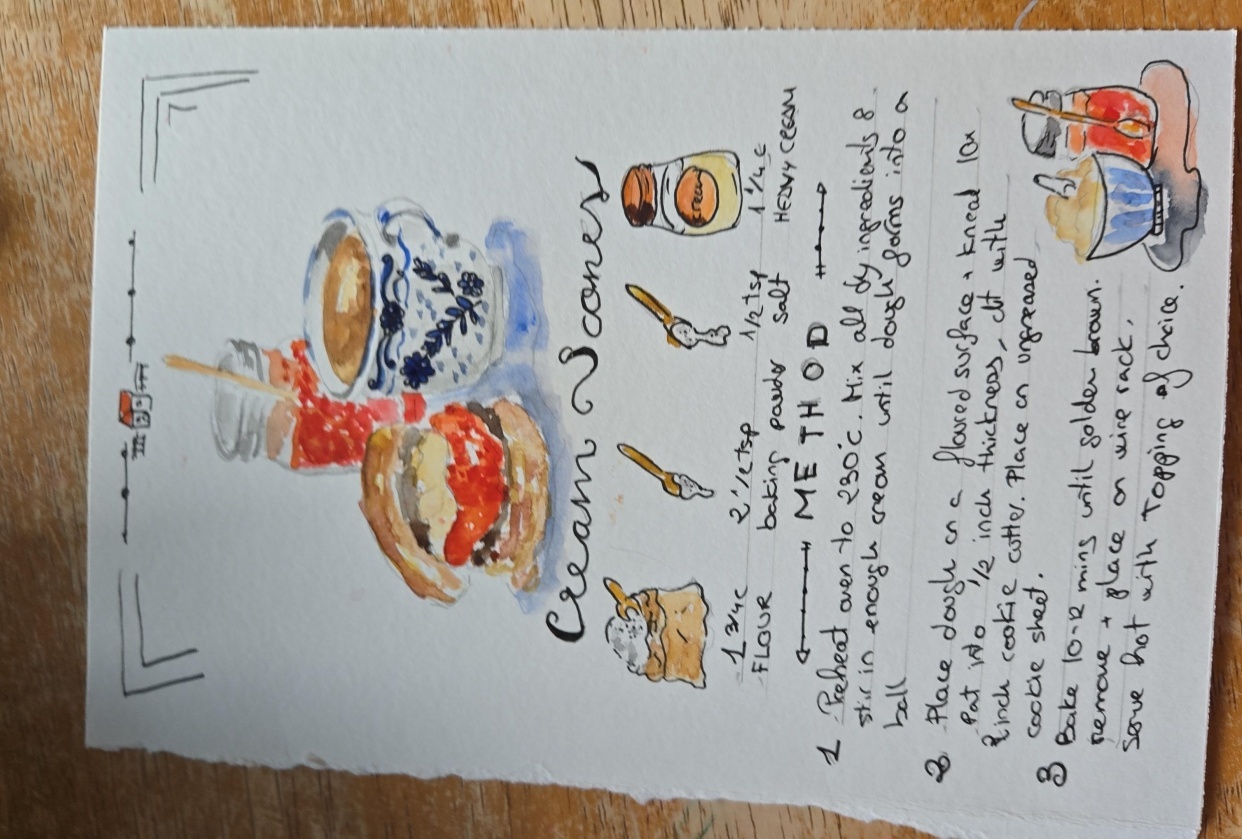 Cream Scones
cream
1 3/4 c
FLOUR
2 1/2 tsp
baking powder
1/2 tsp
salt
1 1/4 c
HEAVY CREAM
METHOD
1 Preheat oven to 230°C. Mix all dry ingredients &
stir in enough cream until dough forms into a
ball
2 Place dough on a floured surface + knead 10x
Pat into 1/2 inch thickness, cut with
2 inch cookie cutter. Place on ungreased
cookie sheet.
3 Bake 10-12 mins until golden brown.
Remove + place on wire rack.
Serve hot with Topping of choice.